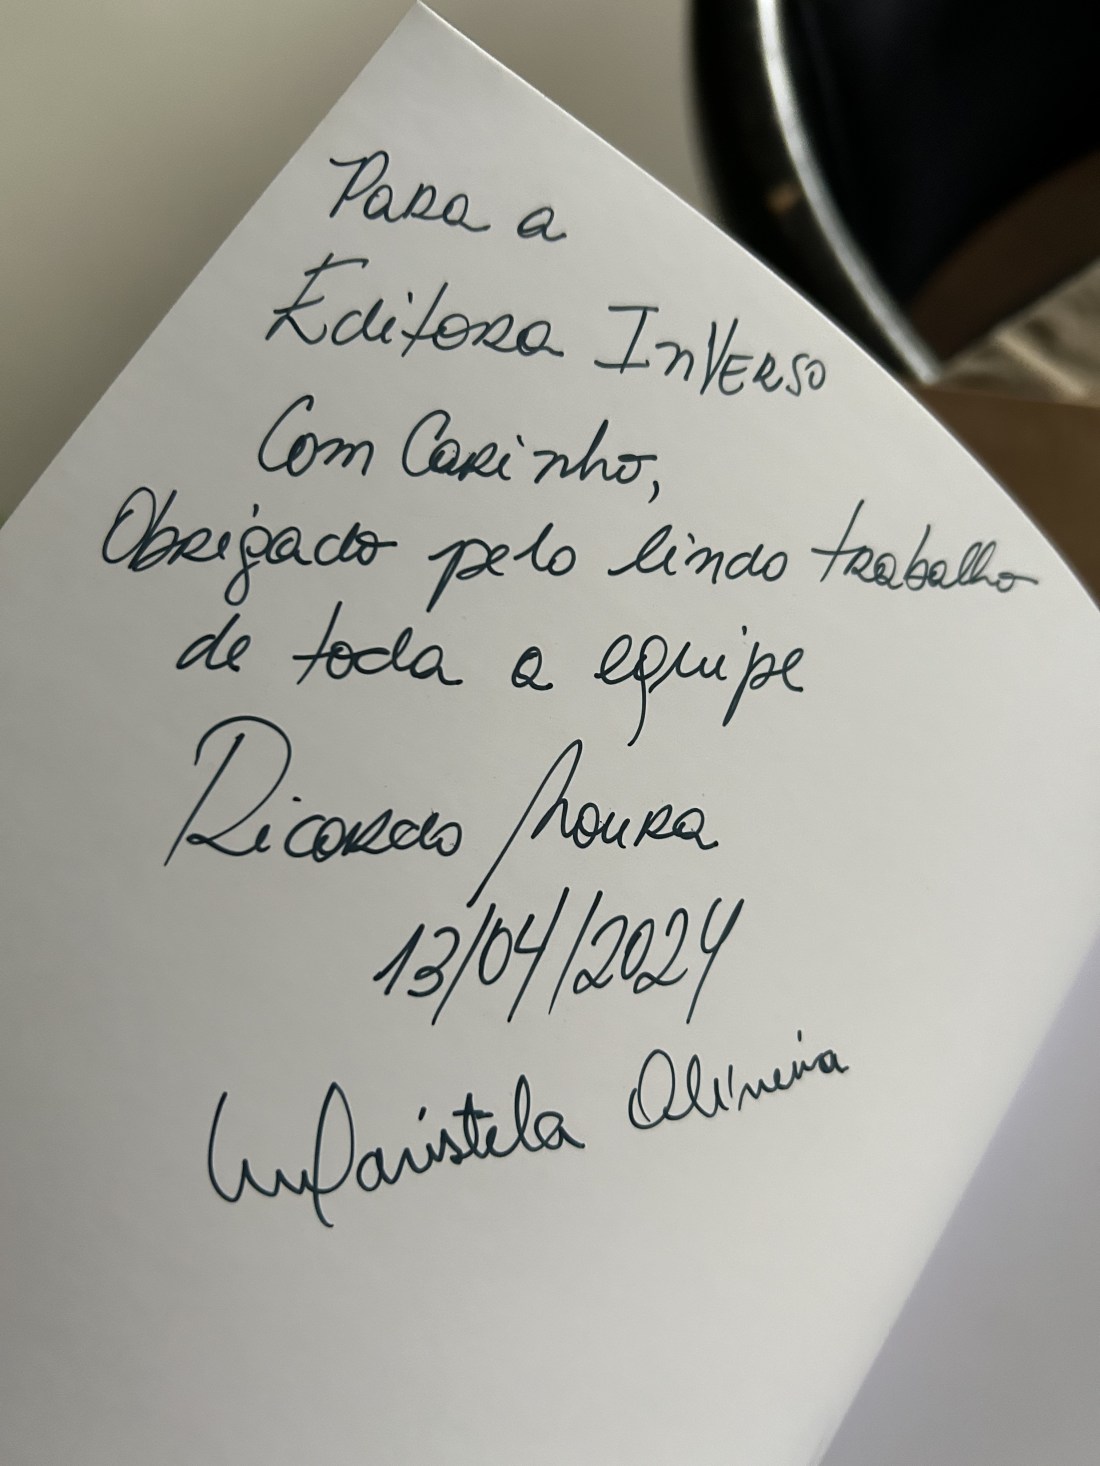 Para a
Editora InVerso
Com Carinho,
Obrigado pelo lindo trabalho
de toda a equipe
Ricardo Moura
13/04/2024
Maristela Oliveira